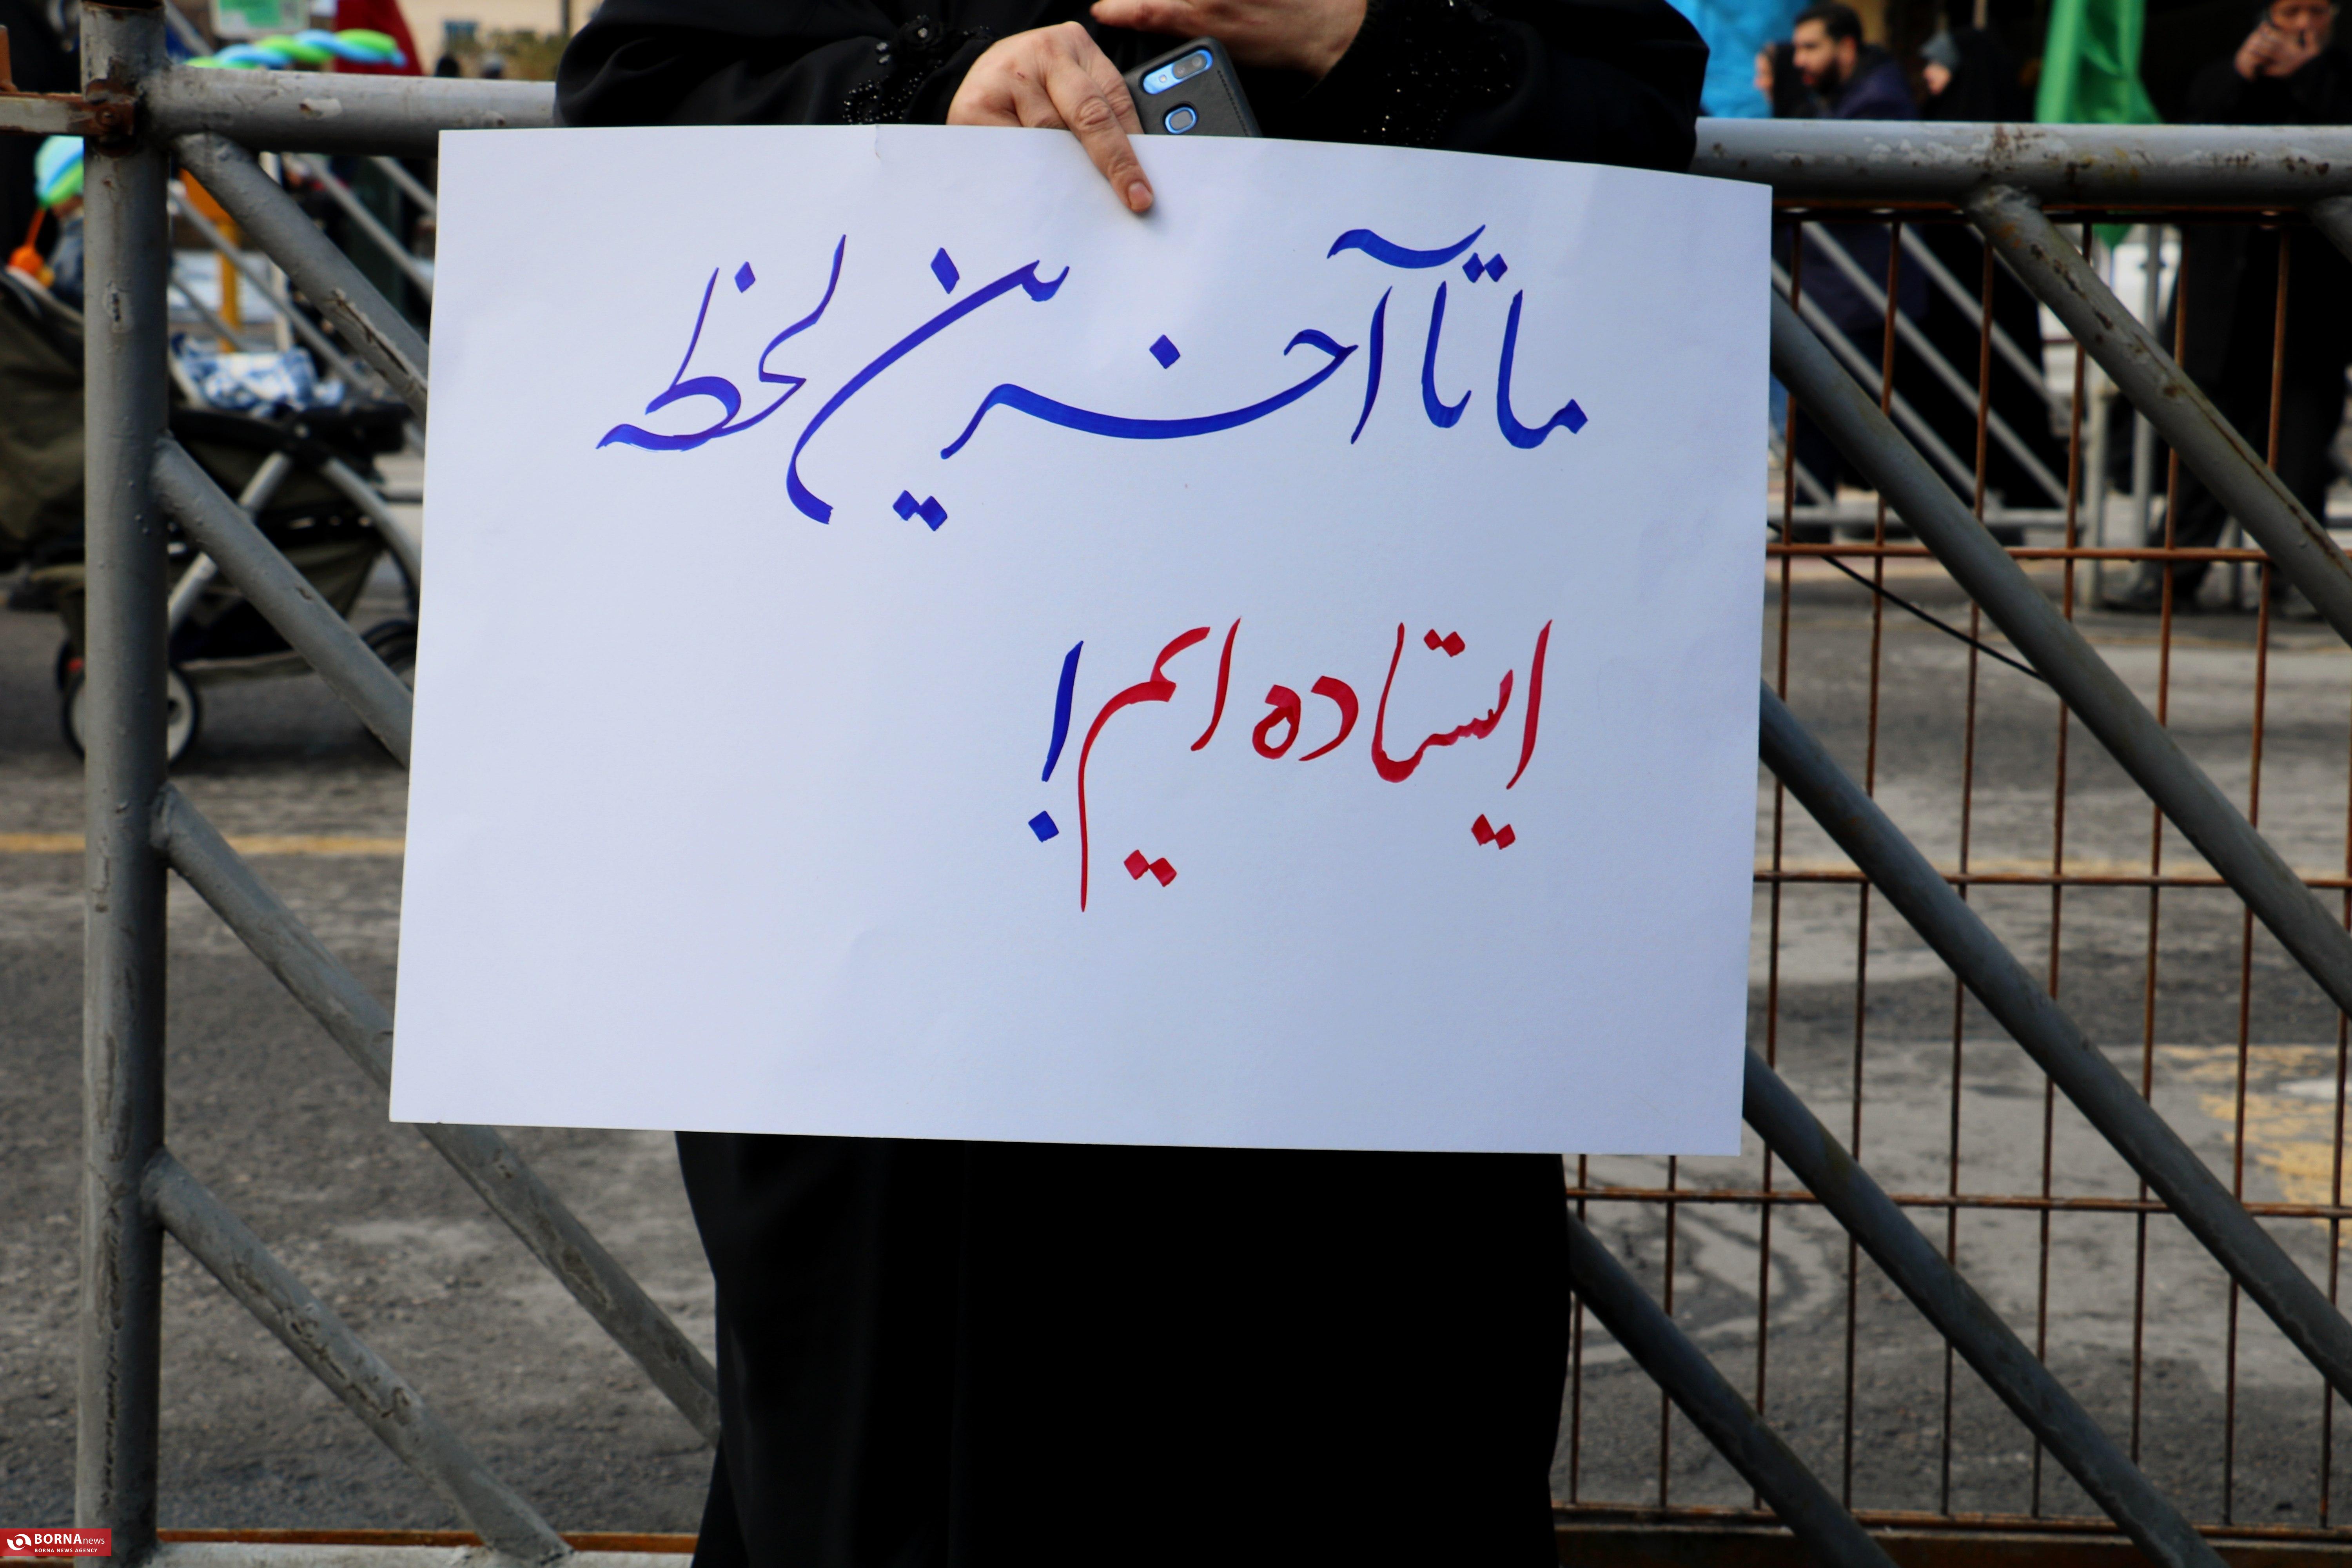 ما تا آخرین لحظه
ایستاده ایم!
BORNA news
BORNA NEWS AGENCY